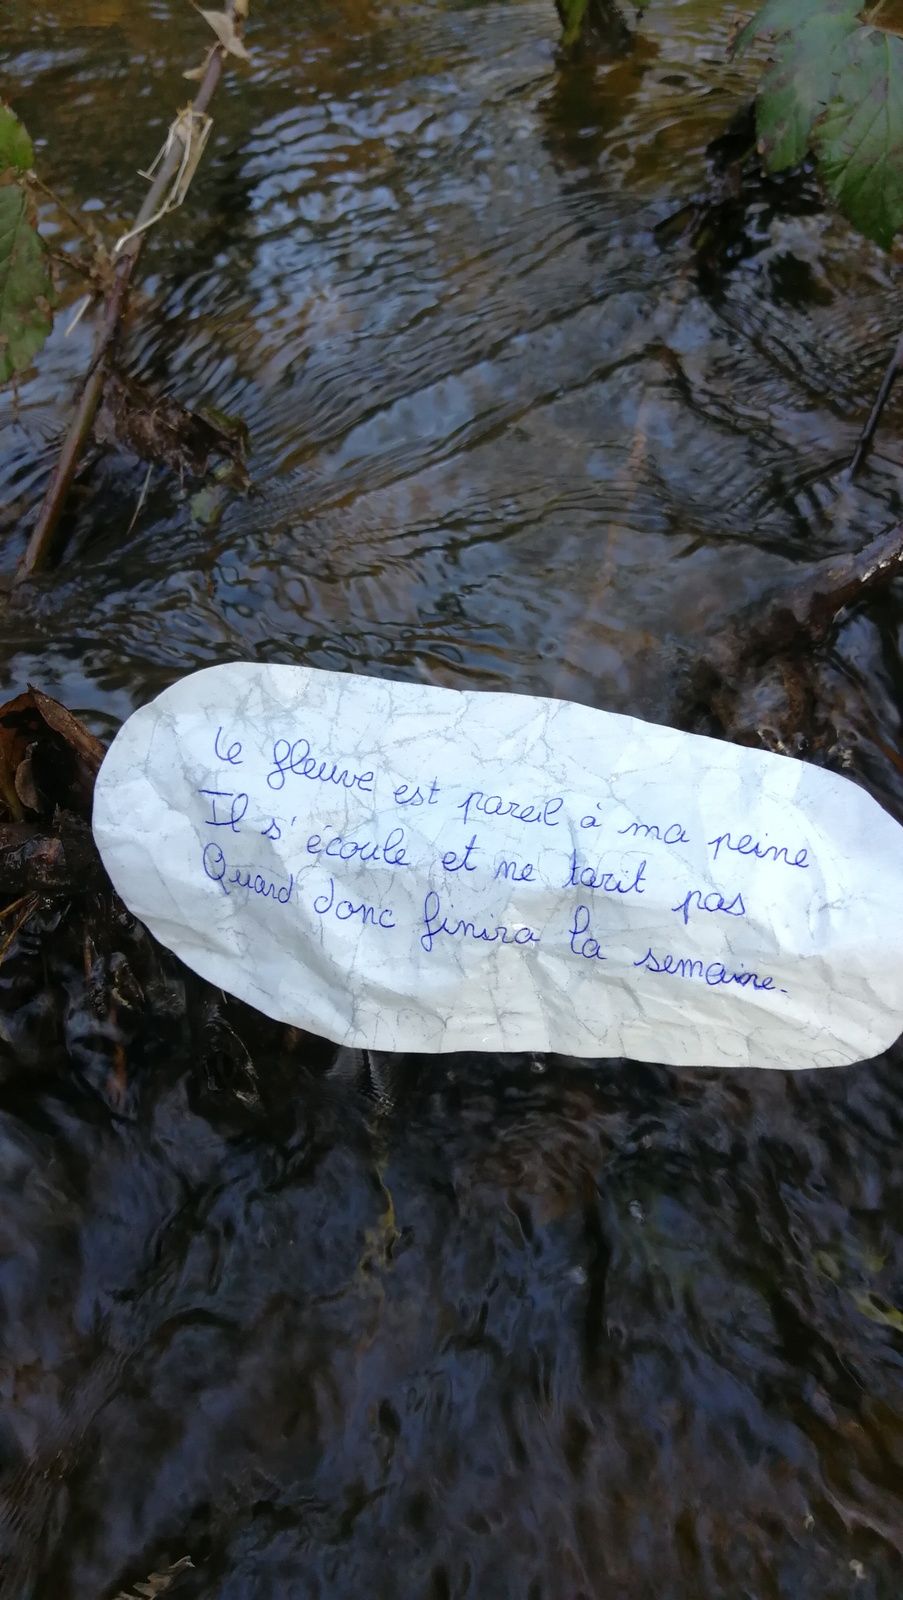 Le fleuve est pareil à ma peine
Il s'écoule et ne tarit pas
Quand donc finira la semaine.